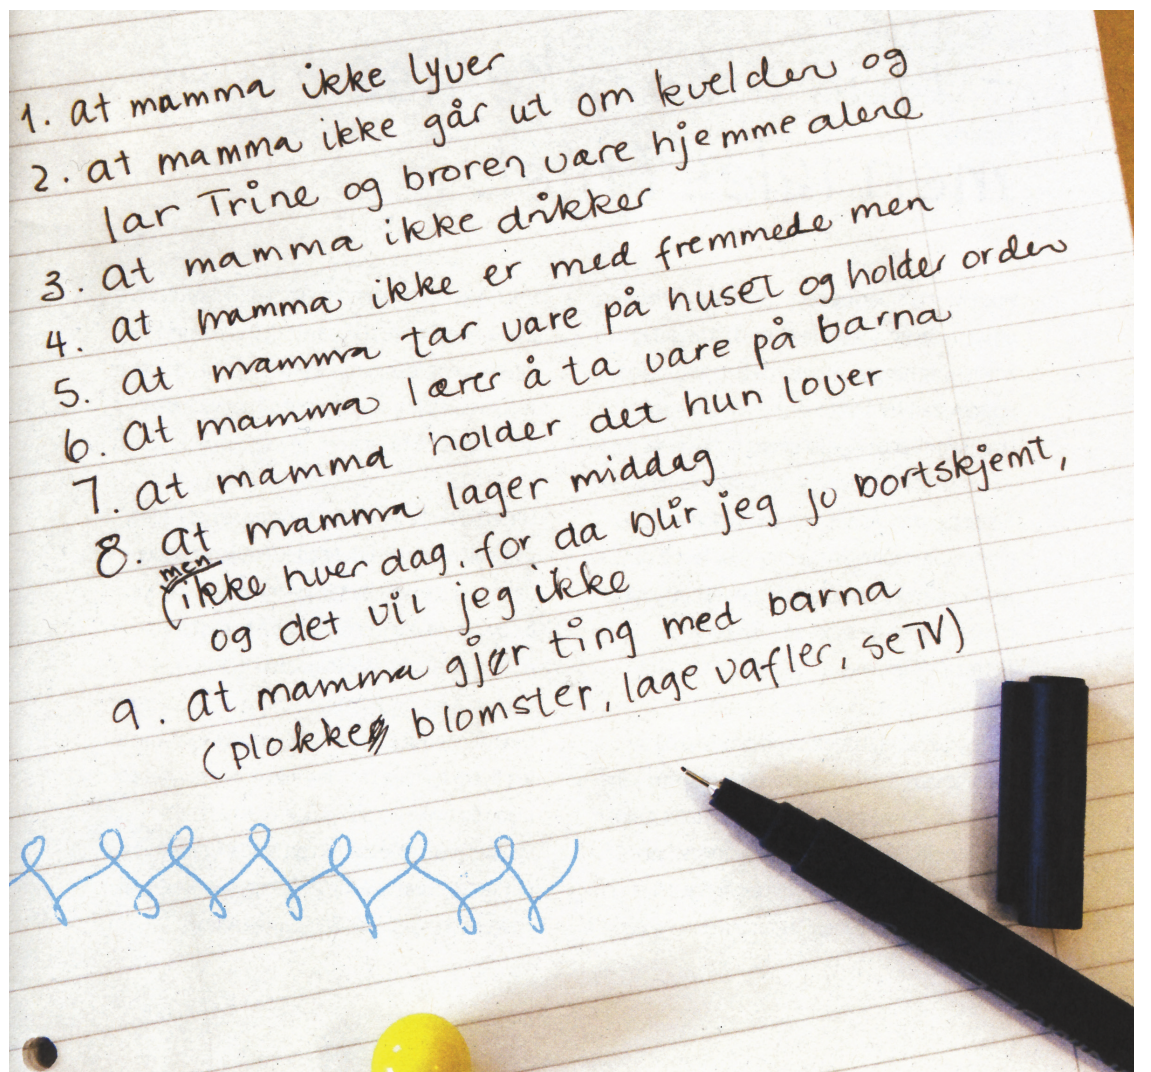 1. at mamma ikke lyver
2. at mamma ikke går ut om kvelden og
lar Trine og broren være hjemme alene
3. at mamma ikke drikker
4. at mamma ikke er med fremmede men
5. at mamma tar vare på huset og holder orden
6. at mamma lærer å ta vare på barna
7. at mamma holder det hun lover
8. at mamma lager middag
men
(ikke hver dag, for da blir jeg jo bortskjemt,
og det vil jeg ikke
9. at mamma gjør ting med barna
(plokke blomster, lage vafler, se TV)